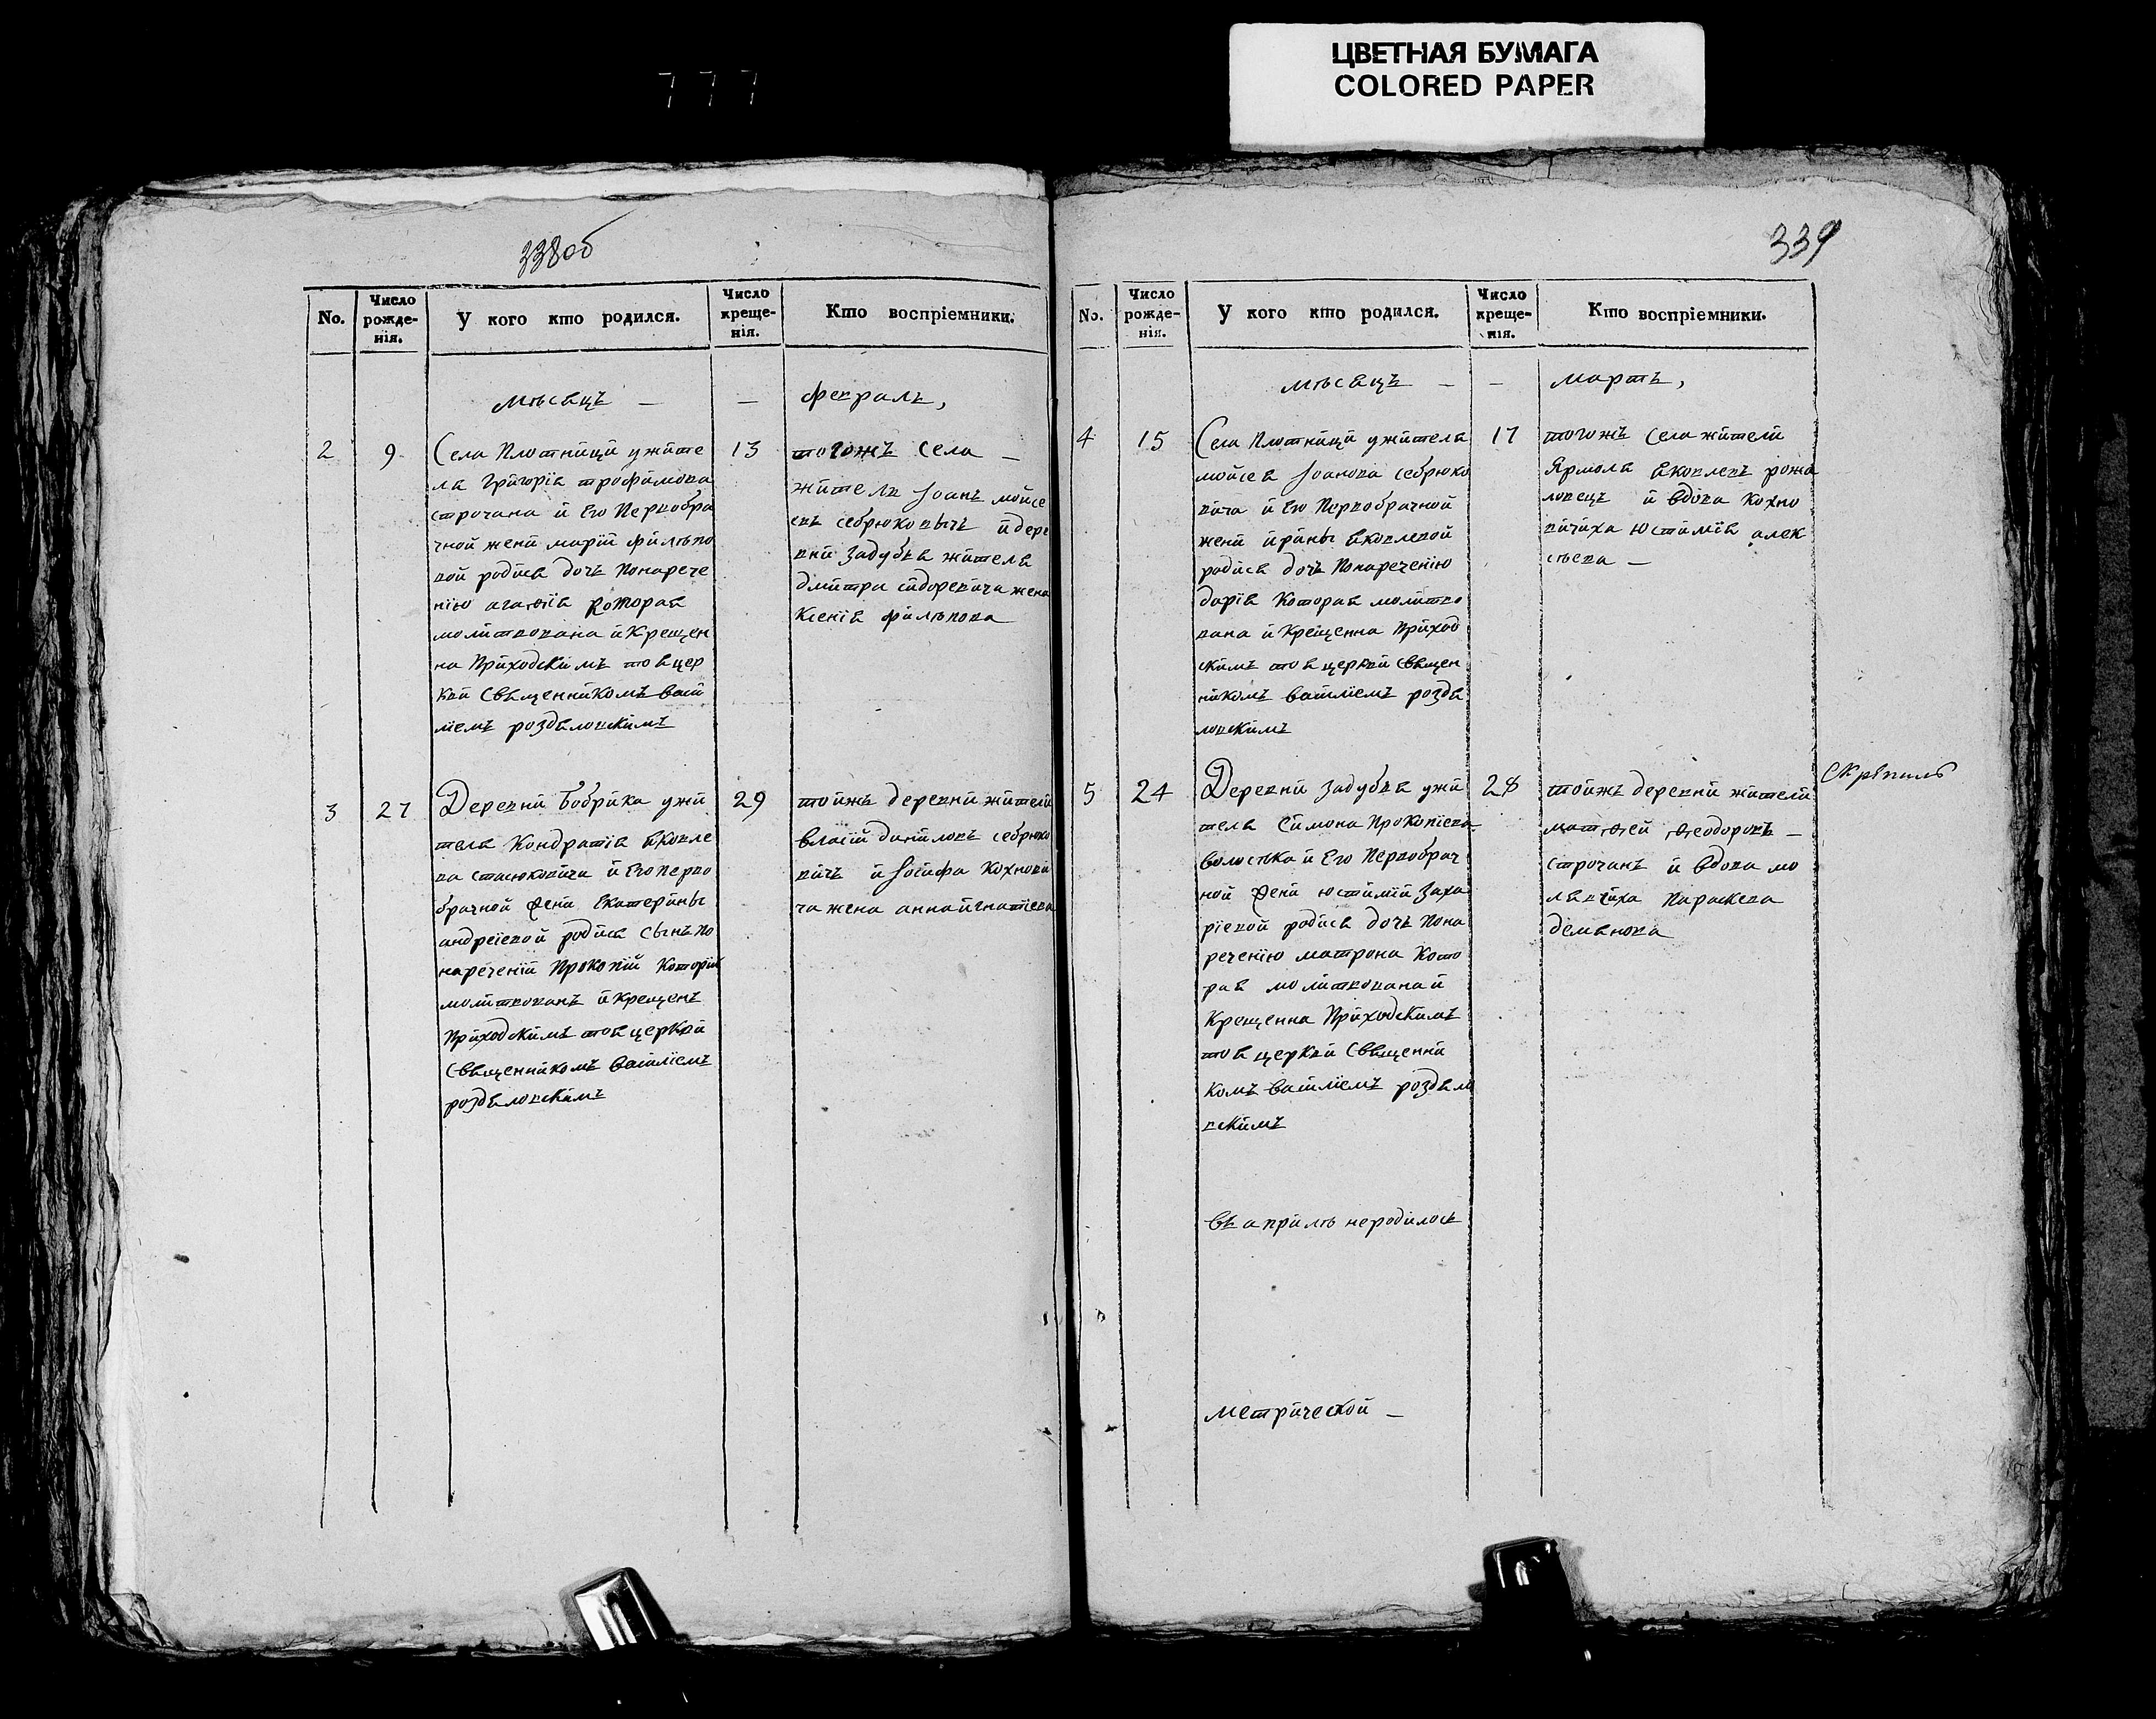 777
ЦВЕТНАЯ БУМАГА
COLORED PAPER
338 об
No.
Число рожде-нія.
У кого кто родился.
Число креще-нія.
Кто воспріемники.
мѣсяцъ — — февраль,
2
9
Села Плотници ужите
ля Григорія трофимова
строчана и Его Первобра
чной жени марій филипо
вой родися дочь Понарече
нію агафія Которая
молитвована и Крещен
на Приходскимъ тоя цер
кви Священникомъ васи
ліемъ роздяловскимъ
13
тогожъ села —
жители Іоанъ мойсе
евъ себрюковычъ и дере
вни Задубья жителя
дмитра сидоревича жена
Ксенія филипова
3
27
Деревни Бобрика ужи
теля Кондратія яковле
ва стасюковича и Его перво
брачной жени Екатерины
андреіевой родися сынъ по
нареченій Прокопій Которій
молитвованъ и Крещенъ
Приходскимъ тоя церкви
Священникомъ василіемъ
роздяловскимъ
29
тоижъ деревни жители
власій даниловъ себрюко
вичъ и Іосифа Кохнови
ча жена анна игнатіева
339
No.
Число рожде-нія.
У кого кто родился.
Число креще-нія.
Кто воспріемники.
мѣсяцъ — — мартъ,
4
15
Села Плотници ужителя
мойсея Іоанова себрюко
вича и Его Первобрачной
жени ирины яковлевой
родися дочь Понареченію
дарія Которая молитво
вана и Крещенна Приход
скимъ тоя церкви Священ
никомъ василіемъ роздя
ловскимъ
17
тогожъ Села жители
Ярмола яковлевъ рожа
ловецъ и вдова Кохно
вичиха юстимія алек
сѣева —
5
24
Деревни Задубья ужи
теля Симона Прокопіева
волостка и Его Первобрач
ной жени юстимій Заха
ріевой родися дочь Пона
реченію матрона Кото
рая молитвована и
Крещенна Приходскимъ
тоя церкви Священни
комъ василіемъ роздяло
вскимъ
28
тоижъ деревни жители
матѳей ѳеодоровъ —
строчанъ и вдова мо
лявчиха Параскева
демянова
Скрѣпилъ
въ априлѣ не родилось
метрической —